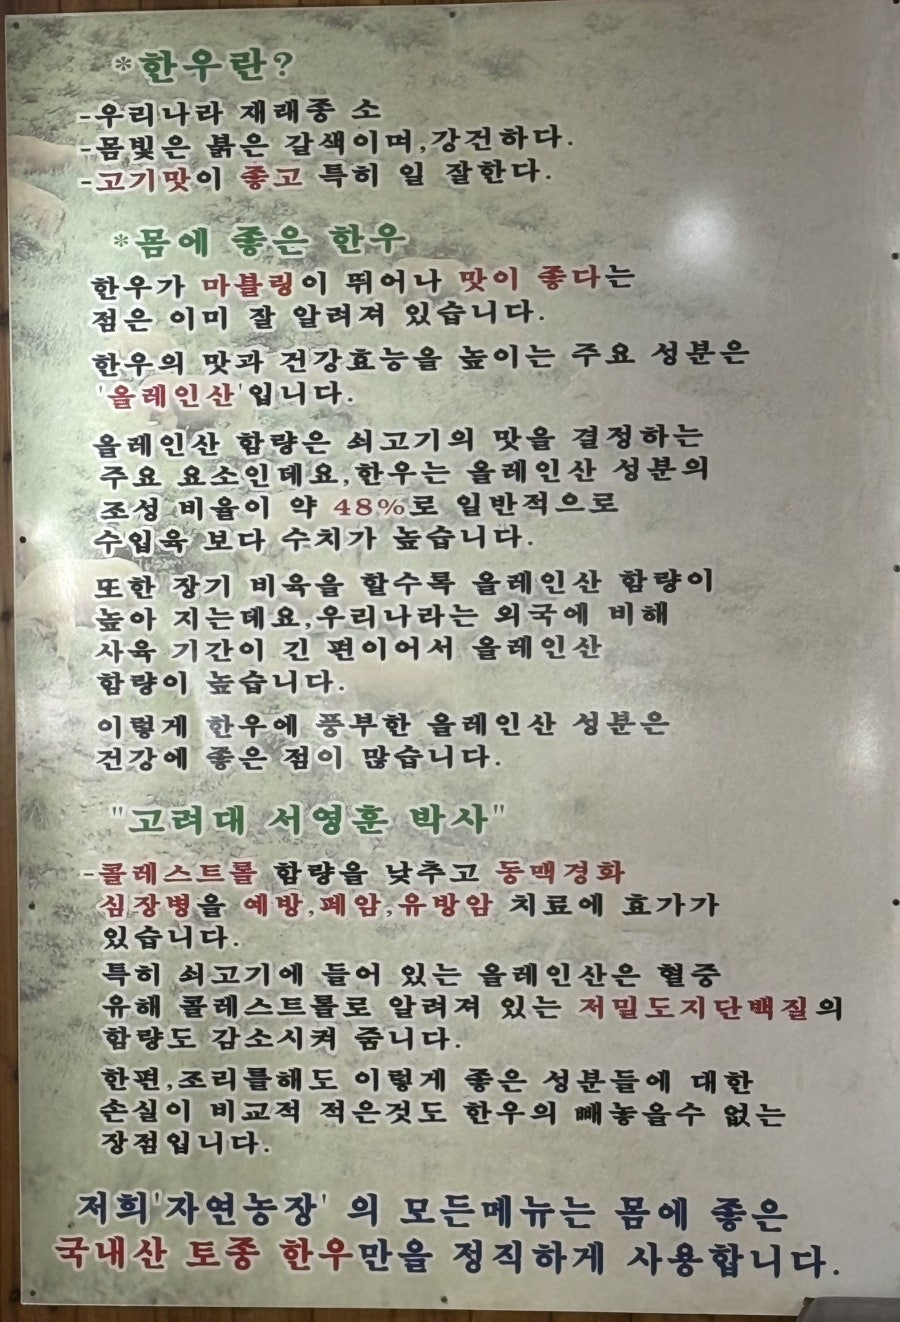 *한우란?
-우리나라 재래종 소
-몸빛은 붉은 갈색이며,강건하다.
-고기맛이 좋고 특히 일 잘한다.
*몸에 좋은 한우
한우가 마블링이 뛰어나 맛이 좋다는
점은 이미 잘 알려져 있습니다.
한우의 맛과 건강효능을 높이는 주요 성분은
'올레인산'입니다.
올레인산 함량은 쇠고기의 맛을 결정하는
주요 요소인데요,한우는 올레인산 성분의
조성 비율이 약 48%로 일반적으로
수입육 보다 수치가 높습니다.
또한 장기 비육을 할수록 올레인산 함량이
높아 지는데요,우리나라는 외국에 비해
사육 기간이 긴 편이어서 올레인산
함량이 높습니다.
이렇게 한우에 풍부한 올레인산 성분은
건강에 좋은 점이 많습니다.
"고려대 서영훈 박사"
-콜레스트롤 함량을 낮추고 동맥경화
심장병을 예방,폐암,유방암 치료에 효가가
있습니다.
특히 쇠고기에 들어 있는 올레인산은 혈중
유해 콜레스트롤로 알려져 있는 저밀도지단백질의
함량도 감소시켜 줍니다.
한편,조리를해도 이렇게 좋은 성분들에 대한
손실이 비교적 적은것도 한우의 빼놓을수 없는
장점입니다.
저희'자연농장' 의 모든메뉴는 몸에 좋은
국내산 토종 한우만을 정직하게 사용합니다.